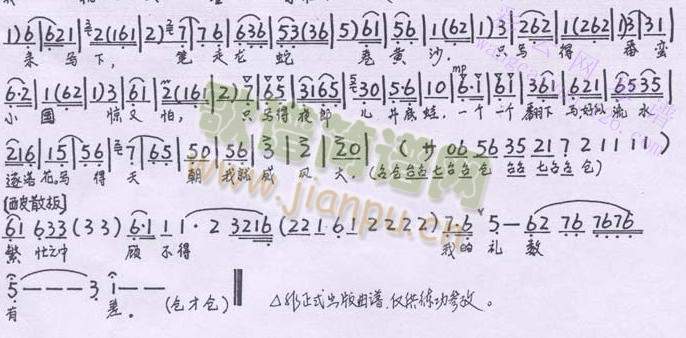 1) 6 | 621 | 2(161 | 2) 7 | 76 | 636 | 53(36 | 5) 61 | 56 | 1(62 | 1) 3 | 262 | 1(262 | 1)3 | 31 |
来 写下, 笔 走龙 蛇 卷 黄 沙. 只写 得 番 蛮
6·2 | 1(62 | 1) 3 | 61 | 2(161 | 2) 1 | 65 | 3165 | 30 | 5·6 | 10 | 6·1 | 61 | 361 | 621 | 6535 |
小 国 惊又 怕, 只 写得 夜郎 儿 井底 蛙. 一个 一个 翻下 马好似 流 水
216 | 15 | 56 | 7 | 65 | 50 | 56 | 3 | 2 | 20 | ( 廾 06 56 35 21 7 2 1 1 1 1 )
逐落 花. 写 得 天 朝 我就 威 风 大. (仓仓台仓七台仓台 仓 台台 七台仓台 仓)
[散板]
61 633 (33) 61 11·2 3216 (221·612222) 7·6 5 — 62 76 7676
繁 忙之中 顾 不得 我的 礼 数
5 — — — 3 1 — —
有 差. (仓才仓) △非正式出版曲谱. 仅供练功参考。
歌谱简谱网
www.jianpu.cn